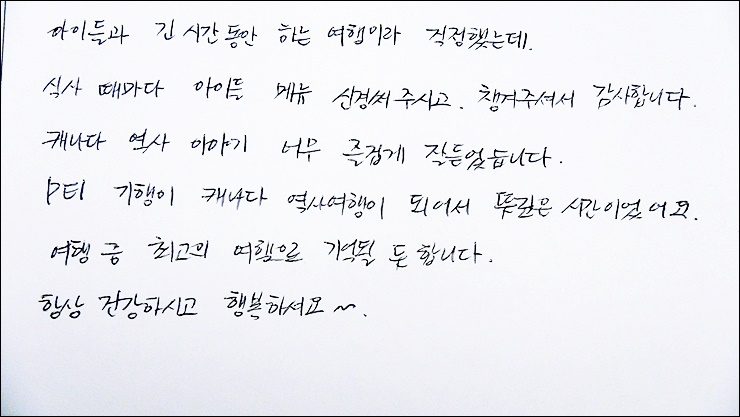 아이들과 긴 시간동안 하는 여행이라 걱정했는데.
식사 때마다 아이들 메뉴 신경써주시고. 챙겨주셔서 감사합니다.
캐나다 역사 이야기 너무 즐겁게 잘들었습니다.
PEI 기행이 캐나다 역사여행이 되어서 뜻깊은 시간이었어요.
여행 중 최고의 여행으로 기억될 듯 합니다.
항상 건강하시고 행복하셔요~.